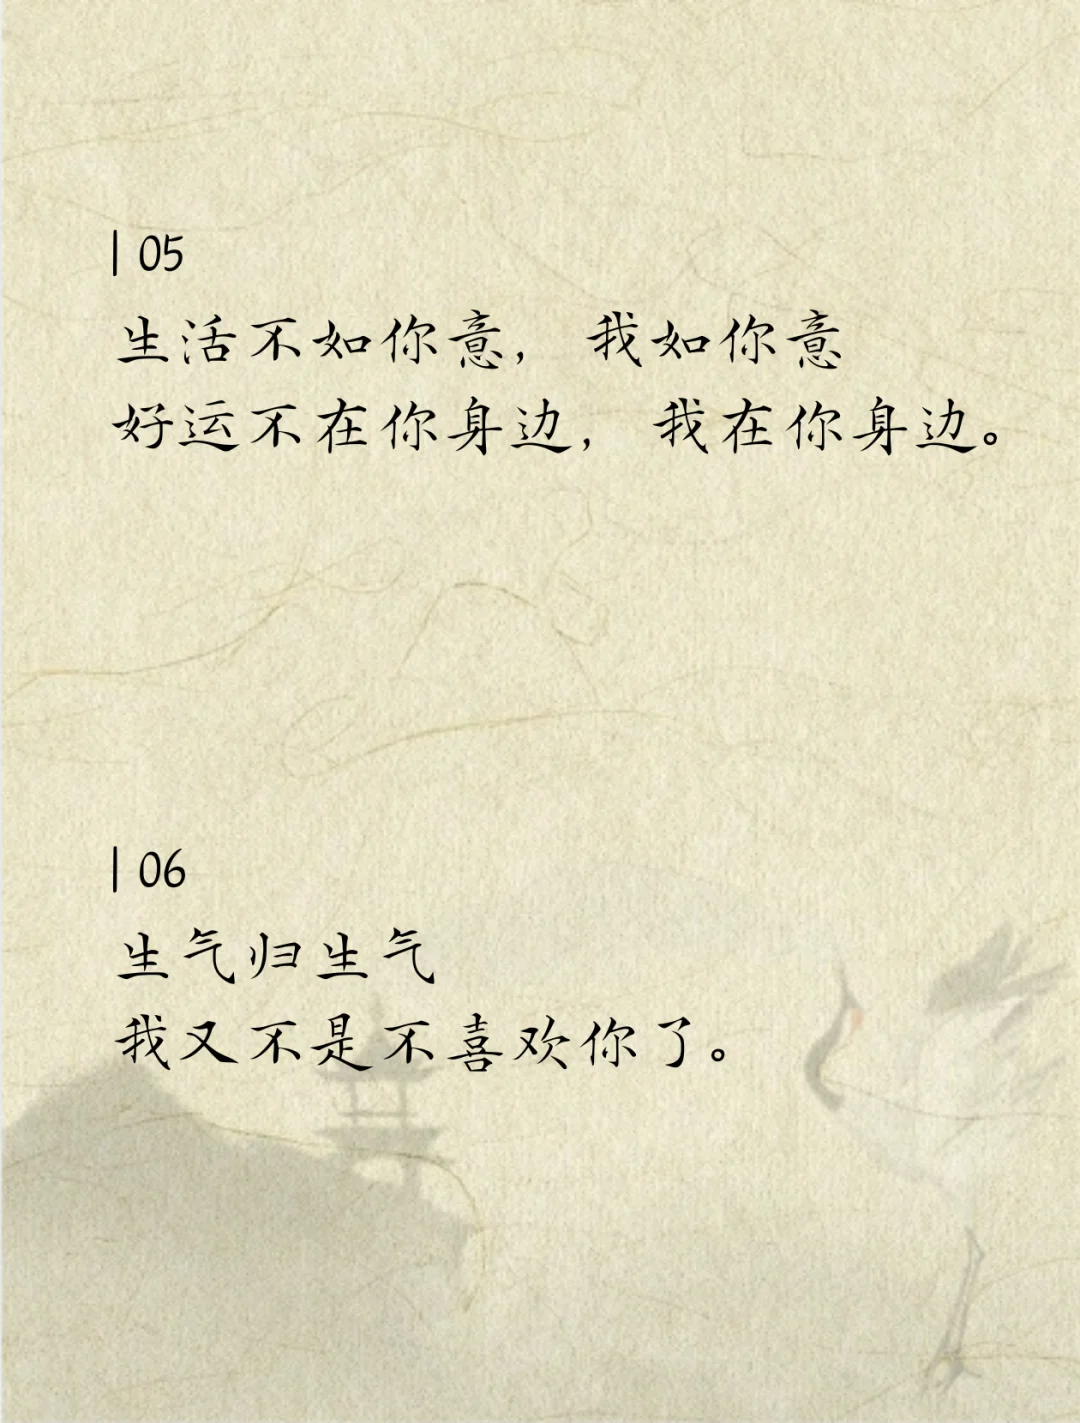 | 05
生活不如你意, 我如你意
好运不在你身边, 我在你身边。
| 06
生气归生气
我又不是不喜欢你了。